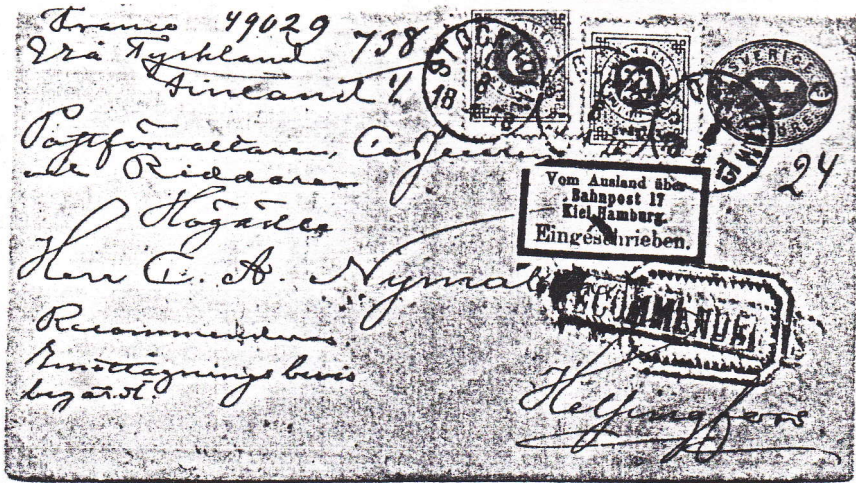 Franco 49029
Via Tyskland 738
Finland
Postförvaltaren,
och Riddaren
Högädle
Herr C. A. Nyman
Recommenderas
Emottagningsbevis
begärdt.
STOCKHOLM
18
SVERIGE
24
Vom Ausland über
Bahnpost 17
Kiel-Hamburg.
Eingeschrieben.
RECOMMENDEL
Helsingfors